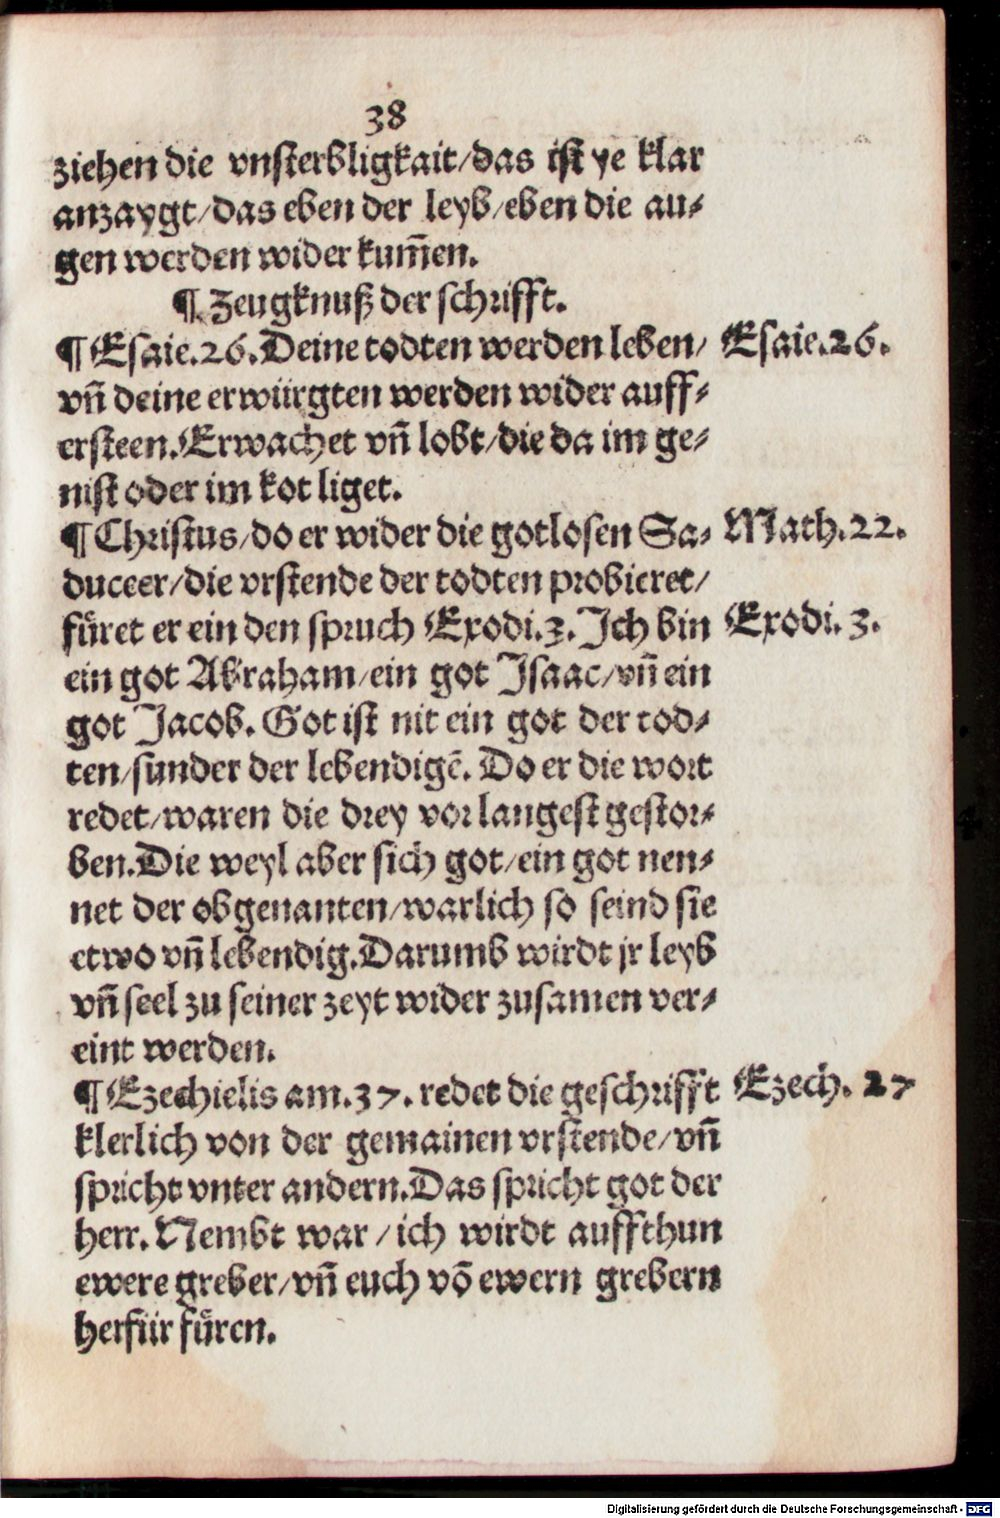 38
ziehen die vnsterbligkait/das ist ye klar
anzaygt/das eben der leyb/eben die au⸗
gen werden wider kum̄en.
¶ Zeugknuß der schrifft.
¶ Esaie.26.Deine todten werden leben/ Esaie.26.
vn̄ deine erwürgten werden wider auff⸗
ersteen.Erwachet vn̄ lobt/die da im ge⸗
nist oder im kot liget.
¶ Christus/do er wider die gotlosen Sa⸗ Math.22.
duceer/die vrstende der todten probieret/
fůret er ein den spruch Exodi.3.Ich bin Exodi.3.
ein got Abraham/ein got Isaac/vn̄ ein
got Jacob. Got ist nit ein got der tod⸗
ten/sunder der lebendigē. Do er die wort
redet/waren die drey vor langest gestor⸗
ben.Die weyl aber sich got/ein got nen⸗
net der obgenanten/warlich so seind sie
etwo vn̄ lebendig.Darumb wirdt jr leyb
vn̄ seel zu seiner zeyt wider zusamen ver⸗
eint werden.
¶ Ezechielis am.37. redet die geschrifft Ezech. 27
klerlich von der gemainen vrstende/vn̄
spricht vnter andern.Das spricht got der
herr. Nembt war / ich wirdt auffthun
ewere greber/vn̄ euch vō ewern grebern
herfür fůren.
Digitalisierung gefördert durch die Deutsche Forschungsgemeinschaft - DFG